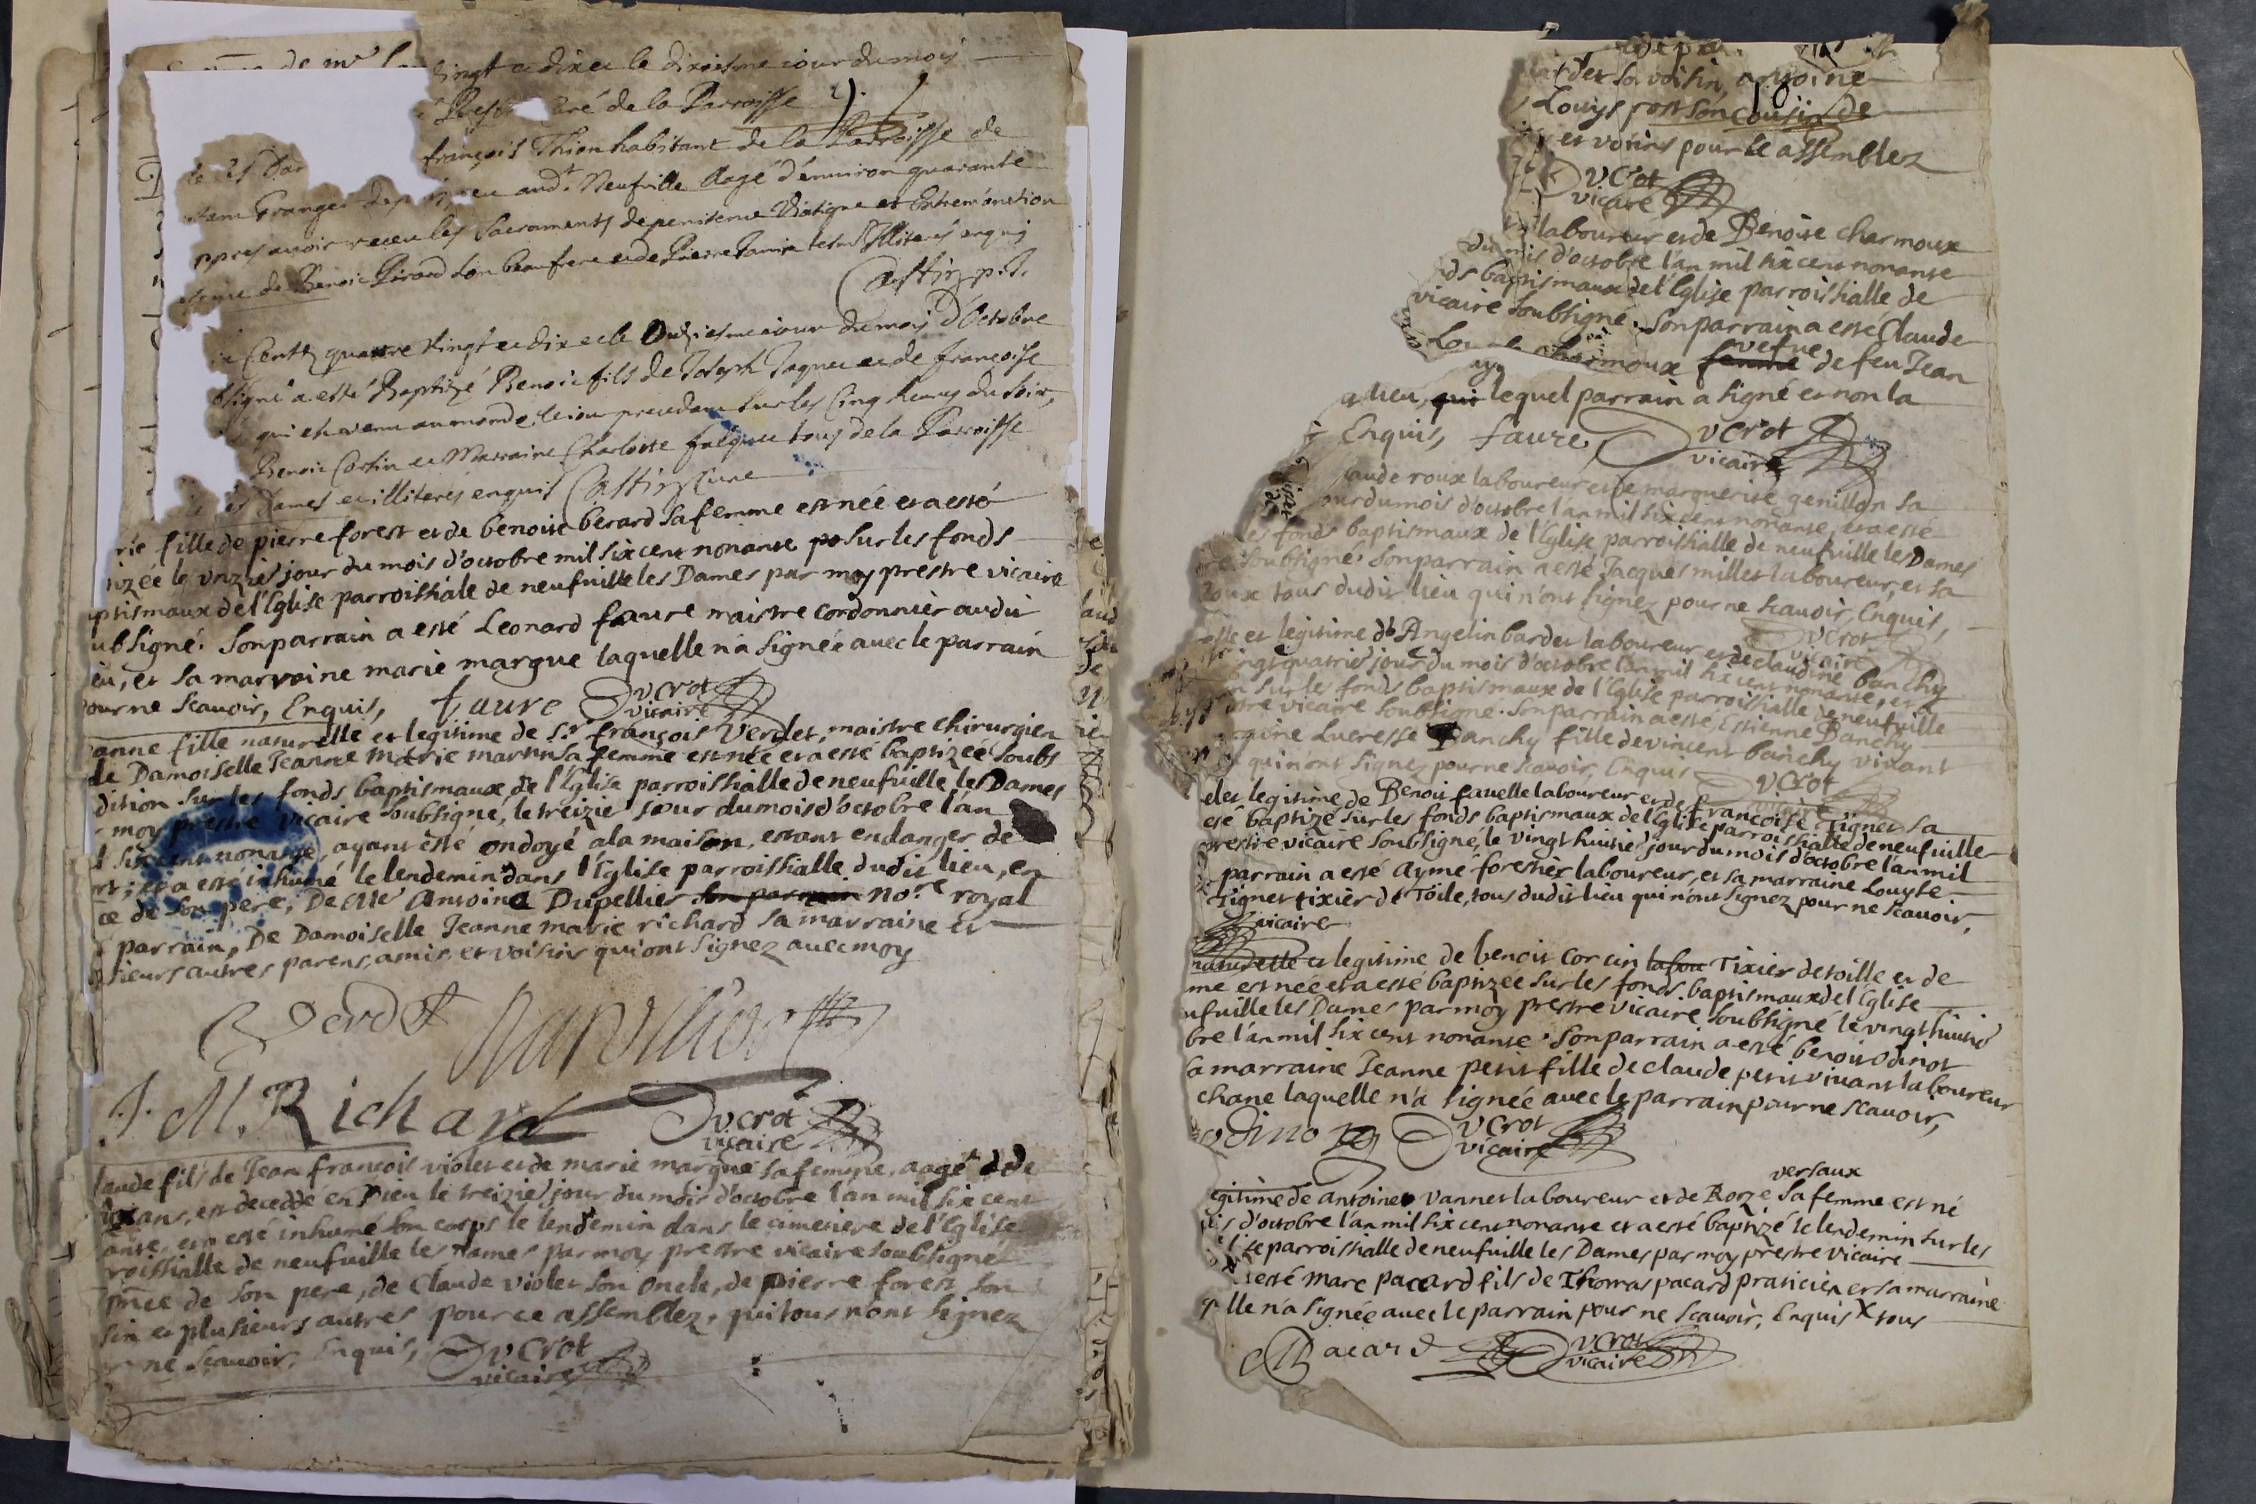 vingt et dix et le dixiesme iour du mois
Curé de la Parroisse
françois Thion habitant de la Parroisse de
audt Neufville Aagé d'environ quarante
appres avoir receu les Sacraments de penitence Viatique et Extremonction
de Benoit Pirard son beaufrere et de Pierre illiterés enquis
Castin p.t.
Centz quattre vingt et dix et le Onziesme iour du mois d'Octobre
signé a esté Baptizé Benoit fils de Joseph Joquet et de françoise
qui est venu au monde le iour precedent sur les Cinq heures du soir,
Benoit Corsin et Marraine Charlotte falque tous de la Parroisse
Dames et illiterés enquis Castin Cure
rie fille de pierre forest et de benoite berard sa femme est née et a esté
tizée le unziej jour du mois d'octobre mil six cent nonante sur les fonds
ptismaux de l'Eglise parroissiale de neufuille les Dames par moy prestre vicaire
ubsigné. son parrain a esté Leonard faure maistre cordonnier audit
eu, et sa marraine marie margue laquelle n'a signée avec le parrain
our ne scauoir, Enquis, faure Ducrot
vicaire
anne fille naturelle et legitime de Sr françois Verdet, maistre chirurgien
de Damoiselle Jeanne Marie martin sa femme est née et a esté baptizée soubs
dition sur les fonds baptismaux de l'Eglise parroissialle de neufuille les Dames
moy prestre vicaire soubsigné, le treizie jour du mois d'octobre l'an
l six cent nonante, ayant esté ondoyé a la maison, estant en danger de
rt; et a esté inhumé le lendemin dans l'Eglise parroissialle dudit lieu, en
ce de son pere, De Mre Antoine Dupellier son parrain nore royal
parrain, De Damoiselle Jeanne marie richard sa marraine et
sieurs autres parens, amis et voisins qui ont signez avec moy
Verdet
J. M. Richard Ducrot
vicaire
laude fils de Jean françois violet et de marie margue sa femme, aagé de
ans, est decedé en Dieu le treizie jour du mois d'octobre l'an mil six cent
ante, et a esté inhumé son corps le lendemin dans le cimetiere de l'Eglise
roissialle de neufuille les Dames par moy prestre vicaire soubsigné
pnce de son pere, de Claude violet son oncle, de pierre forest son
sin et plusieurs autres pour ce assemblez, qui tous n'ont signez
ne scauoir, Enquis, Ducrot
vicaire
det son voisin, antoine
Louys son cousin de
et voisins pour ce assemblez
Ducrot
vicaire
laboureur et de Benoite charmoux
du mois d'octobre l'an mil six cent nonante
ds baptismaux de l'Eglise parroissialle de
vicaire soubsigné. son parrain a esté Claude
vefue
charmoux femme de feu Jean
lieu, qui lequel parrain a signé et non la
Enquis, faure, Ducrot
vicaire
laude roux laboureur et de marguerite genillon sa
our du mois d'octobre l'an mil six cent nonante, et a esté
les fonds baptismaux de l'Eglise parroissialle de neufuille les Dames
soubsigné. son parrain a esté Jacques millet laboureur, et sa
roux tous dudit lieu qui n'ont signez pour ne scauoir, Enquis,
Ducrot
vicaire
et legitime d'Angelin bardet laboureur et de claudine banchy
ingt quatrie jour du mois d'octobre l'an mil six cent nonante, et a
sur les fonds baptismaux de l'Eglise parroissialle de neufuille
vicaire soubsigné. son parrain a esté Estienne Banchy
Lucresse Banchy fille de vincent banchy vivant
qui n'ont signez pour ne scauoir, Enquis Ducrot
vicaire
et legitime de Benoit fauelle laboureur et de françoise Tignet sa
esté baptizé sur les fonds baptismaux de l'Eglise parroissialle de neufuille
prestre vicaire soubsigné, le vingt huitie jour du mois d'octobre l'an mil
parrain a esté Aymé forestier laboureur, et sa marraine Louyse
Tignet tixier de Toile, tous dudit lieu qui n'ont signez pour ne scauoir,
vicaire
naturelle et legitime de benoit Corcin labou Tixier de toille et de
me est née et a esté baptizée sur les fonds baptismaux de l'Eglise
ufuille les Dames par moy prestre vicaire soubsigné le vingt huitie
bre l'an mil six cent nonante. son parrain a esté benoit odinot
a marraine Jeanne petit fille de claude petit vivant laboureur
chane laquelle n'a signée avec le parrain pour ne scauoir,
odinot Ducrot
vicaire
versaux
egitime de antoine vannet laboureur et de Roze sa femme est né
is d'octobre l'an mil six cent nonante et a esté baptizé le lendemin sur les
lise parroissialle de neufuille les Dames par moy prestre vicaire
esté marc pacard fils de Thomas pacard praticien et sa marraine
elle n'a signée avec le parrain pour ne scauoir, Enquis X tous
Pacard Ducrot
vicaire